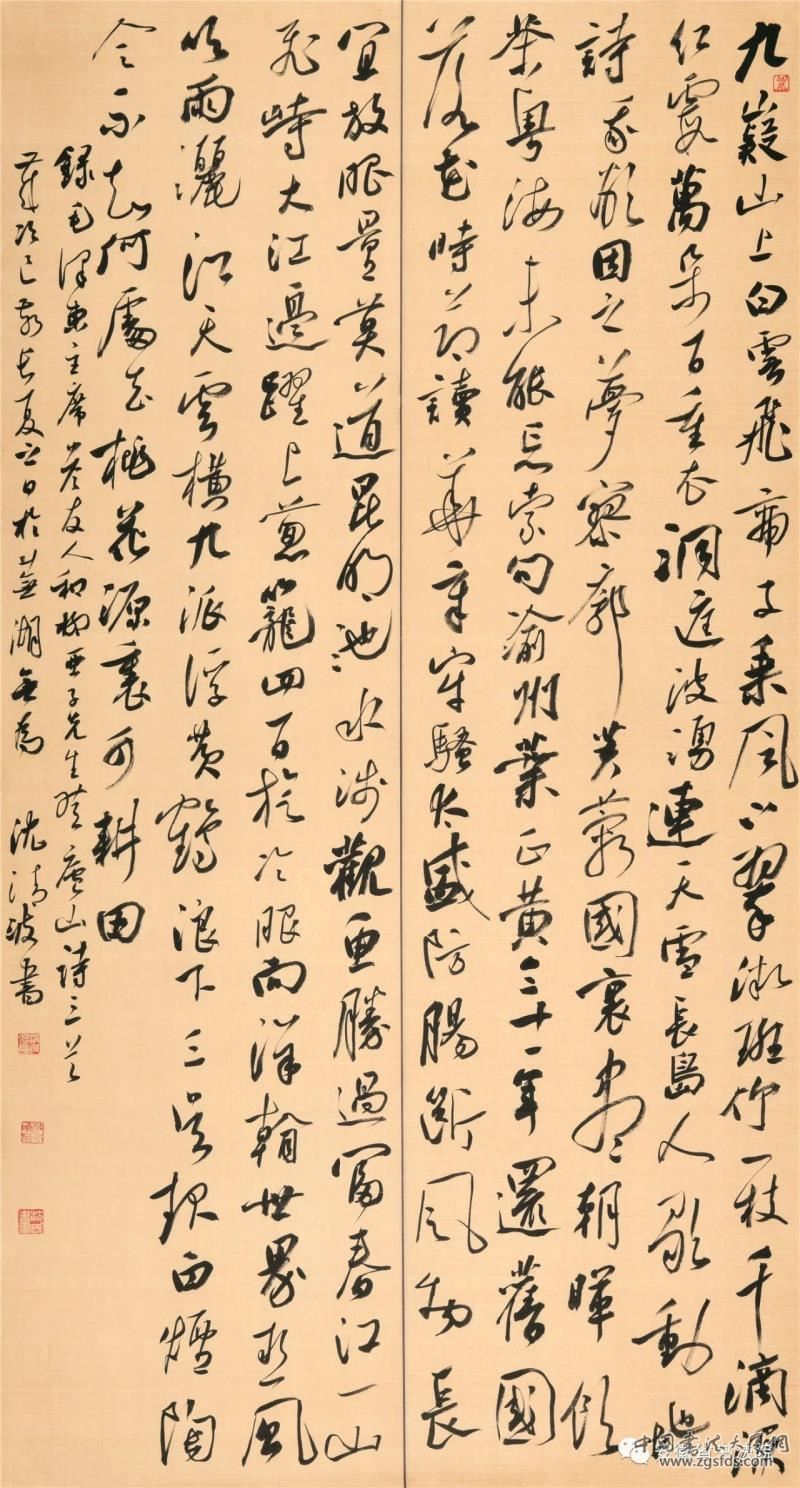 九嶷山上白雲飛帝子乘風下翠微斑竹一枝千滴淚
紅霞萬朵百重衣洞庭波湧連天雪長島人歌動地
詩我欲因之夢寥廓芙蓉國裏盡朝暉飲
茶粵海未能忘索句渝州葉正黃三十一年還舊國
落花時節讀華章牢騷太盛防腸斷風物長
宜放眼量莫道昆明池水淺觀魚勝過富春江一山
飛峙大江邊躍上葱籠四百旋冷眼向洋看世界熱風
吹雨灑江天雲橫九派浮黃鶴浪下三吳起白煙陶
令不知何處去桃花源裏可耕田
錄毛澤東主席答友人和柳亞子先生登廬山詩三首
歲次己亥長夏之日於蕪湖無為 沈清波書
www.zgsfds.com